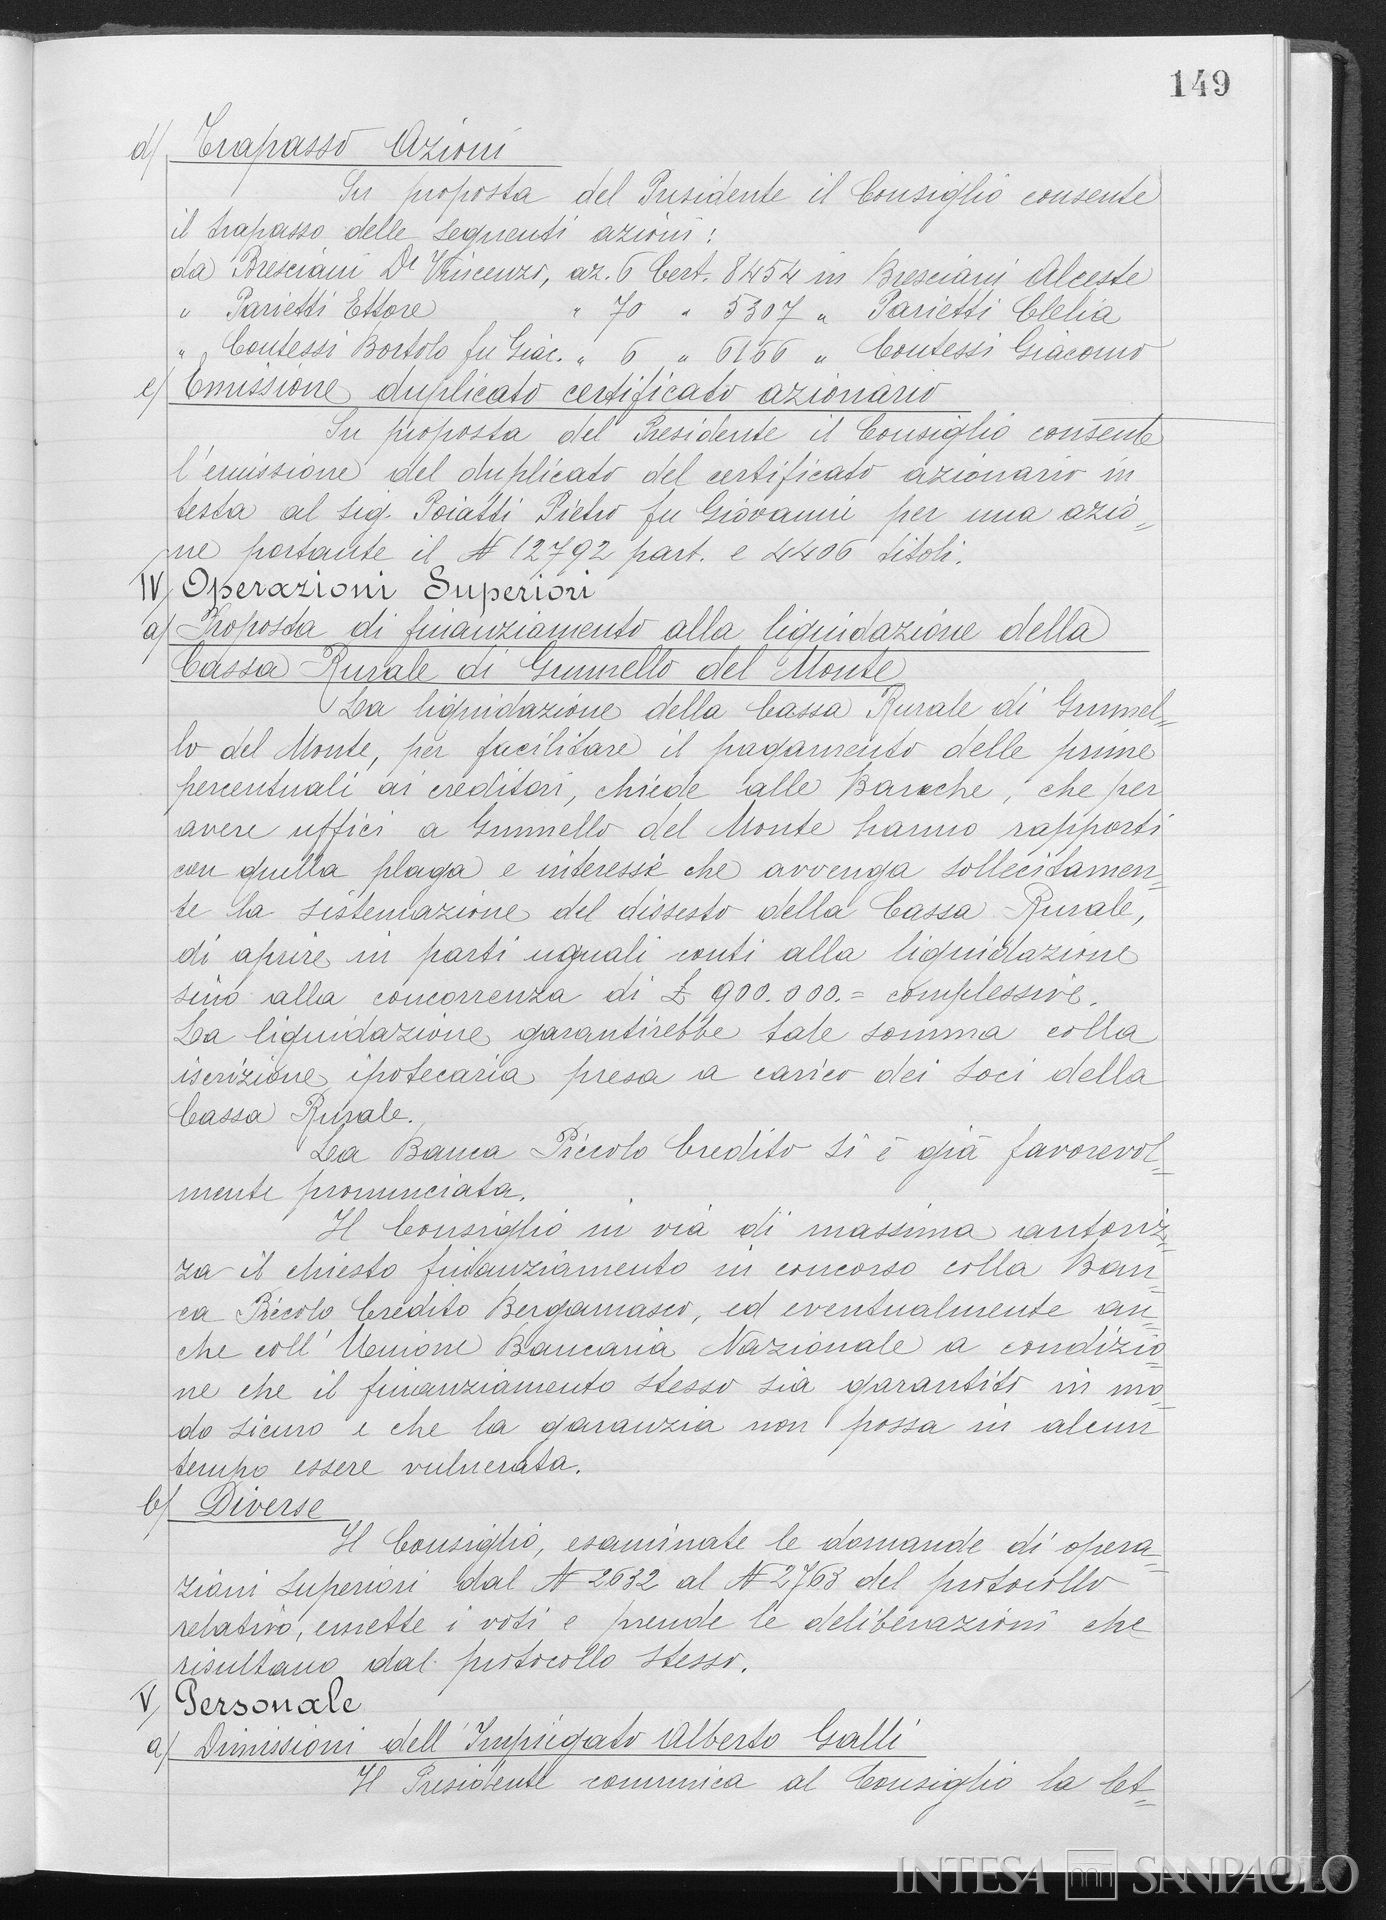 149
d) Trapasso Azioni
Su proposta del Presidente il Consiglio consente
il trapasso delle seguenti azioni:
da Bresciani Dr Vincenzo, az. 6 Cert. 8454 in Bresciani Alceste
" Parietti Ettore " 70 " 5307 " Parietti Clelia
" Contessi Bortolo fu Giac. " 6 " 6166 " Contessi Giacomo
e) Emissione duplicato certificato azionario
Su proposta del Presidente il Consiglio consente
l'emissione del duplicato del certificato azionario in
testa al sig. Poiatti Pietro fu Giovanni per una azio=
ne portante il N 12792 part. e 4406 titoli.
IV) Operazioni Superiori
a) Proposta di finanziamento alla liquidazione della
Cassa Rurale di Grumello del Monte
La liquidazione della Cassa Rurale di Grumel=
lo del Monte, per facilitare il pagamento delle prime
percentuali ai creditori, chiede alle Banche, che per
avere uffici a Grumello del Monte hanno rapporti
con quella plaga e interesse che avvenga sollecitamen=
te la sistemazione del dissesto della Cassa Rurale,
di aprire in parti uguali conti alla liquidazione
sino alla concorrenza di £ 900.000.= complessive.
La liquidazione garantirebbe tale somma colla
iscrizione ipotecaria presa a carico dei soci della
Cassa Rurale.
La Banca Piccolo Credito si è già favorevol=
mente pronunciata.
Il Consiglio in via di massima autoriz=
za il chiesto finanziamento in concorso colla Ban=
ca Piccolo Credito Bergamasco, ed eventualmente an=
che coll'Unione Bancaria Nazionale a condizio=
ne che il finanziamento stesso sia garantito in mo=
do sicuro e che la garanzia non possa in alcun
tempo essere vulnerata.
b) Diverse
Il Consiglio, esaminate le domande di opera=
zioni superiori dal N 2632 al N 2763 del protocollo
relativo, emette i voti e prende le deliberazioni che
risultano dal protocollo stesso.
V) Personale
a) Dimissioni dell'Impiegato Alberto Galli
Il Presidente comunica al Consiglio la let=
INTESA SANPAOLO